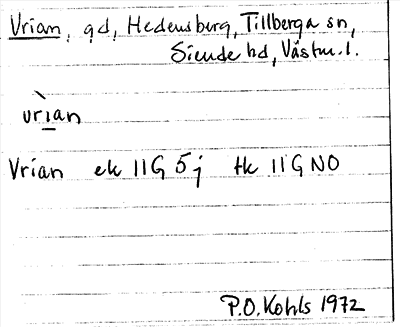 Vrian, gd, Hedensberg, Tillberga sn,
Siende hd, Västm.l.
vrìan
Vrian ek 11G 5j tk 11G NO
P.O. Kohls 1972